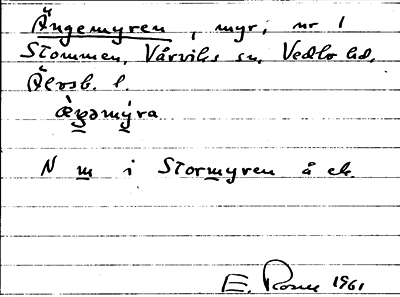 Ängemyren, myr, nr 1
Stommen, Vårviks sn, Vedbo hd,
Älvsb. l.
N m i Stormyren å ek.
E. 1961